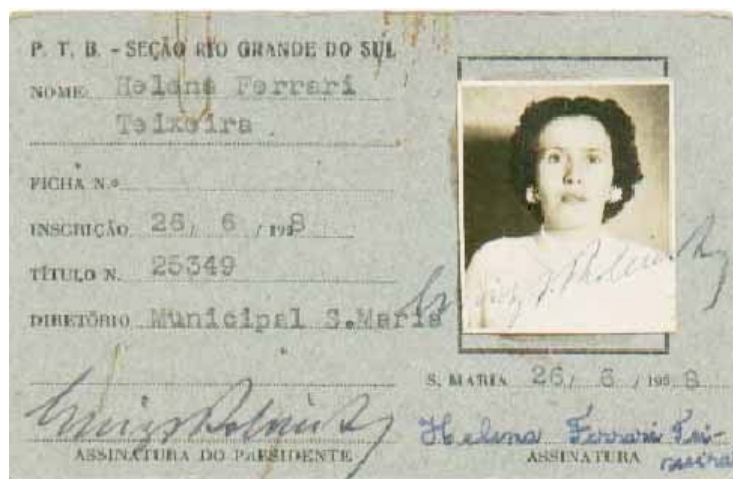 P. T. B. - SEÇÃO RIO GRANDE DO SUL
NOME Helena Ferrari
Teixeira
FICHA N.º
INSCRIÇÃO 26/ 6 /1958
TÍTULO N. 25349
DIRETÓRIO Municipal S.Maria
S. MARIA 26/ 6 /195 8
Helena Ferrari Tei-
xeira
ASSINATURA DO PRESIDENTE
ASSINATURA